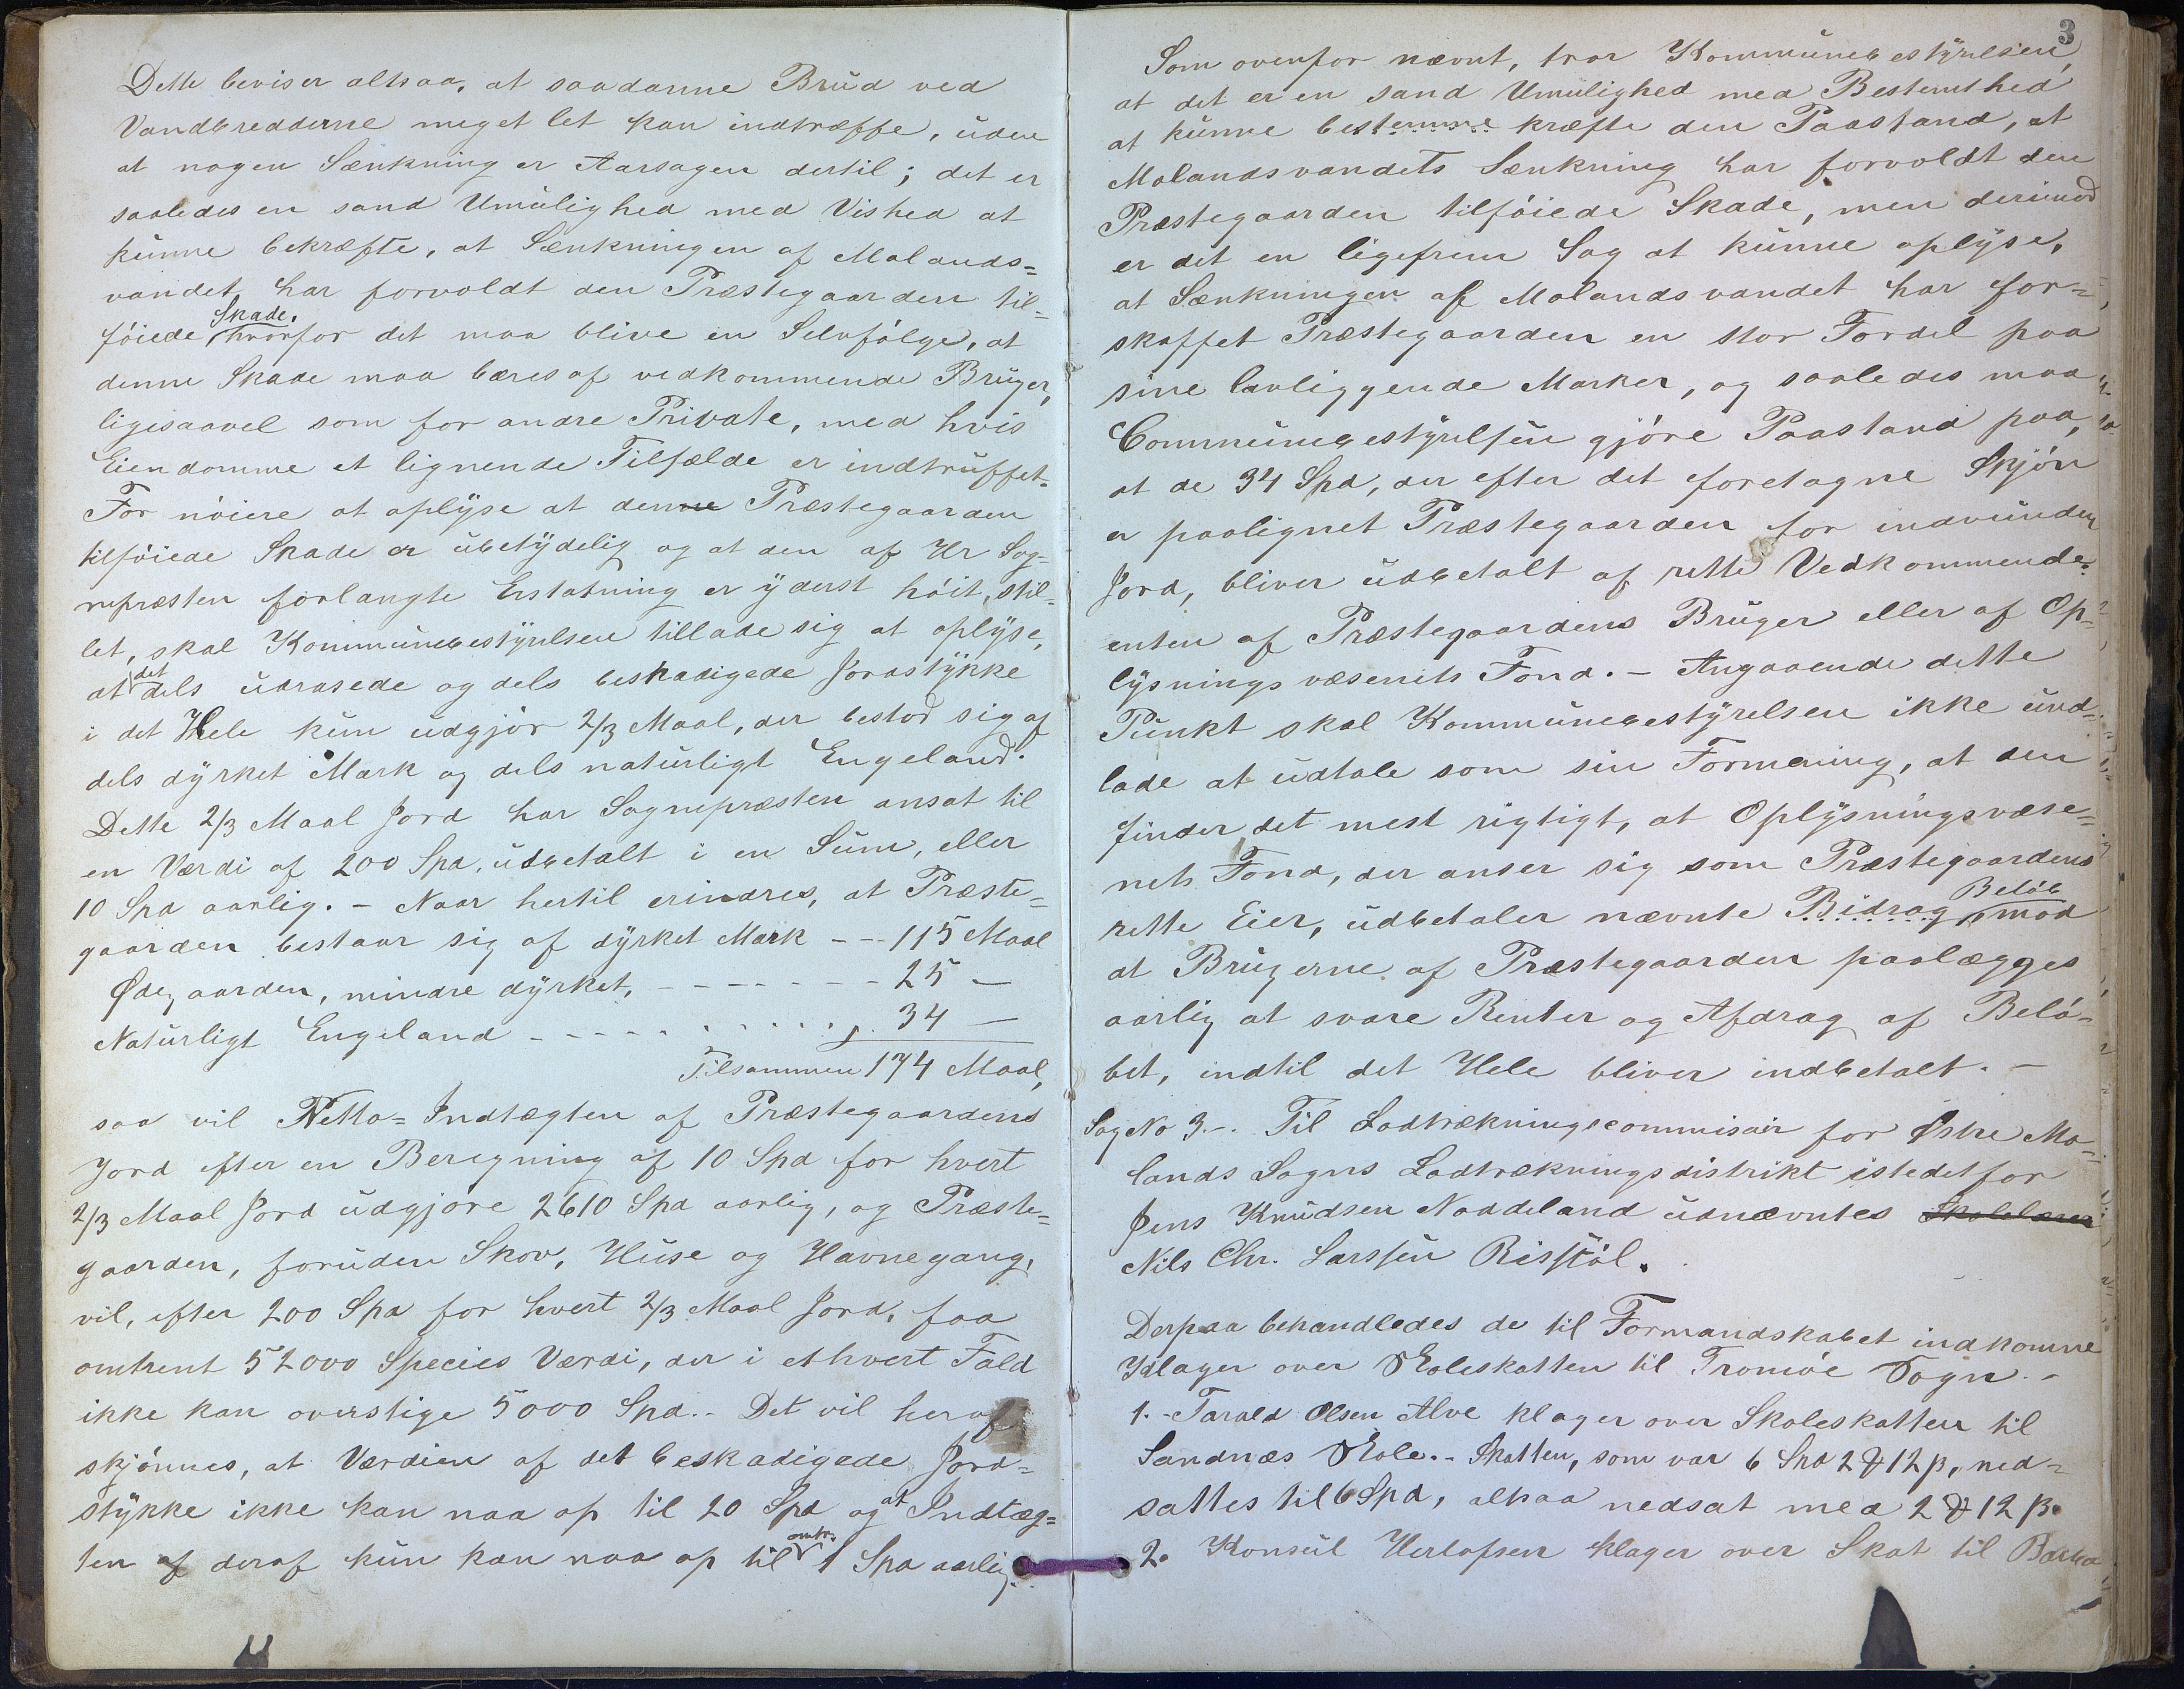 Dette beviser altsaa, at saadanne Brud ved
Vandbredderne meget let kan indtræffe, uden
at nogen Sænkning er Aarsagen dertil; det er
saaledes en sand Umulighed med Vished at
kunne bekræfte, at Sænkningen af Molands=
vandet har forvoldt den Præstegaarden til=
føiede Skade, hvorfor det maa blive en Selvfølge, at
denne Skade maa bæres af vedkommende Bruger,
ligesaavel som for andre Private, med hvis
Eiendomme et lignende Tilfælde er indtruffet.
For nøiere at oplyse at denne Præstegaarden
tilføiede Skade er ubetydelig og at den af Hr Sog=
nepræsten forlangte Erstatning er yderst høit, stil=
let, skal Kommunebestyrelsen tillade sig at oplyse,
at det dels udrasede og dels beskadigede Jordstykke
i det Hele kun udgjør 2/3 Maal, der bestod sig af
dels dyrket Mark og dels naturligt Engeland.
Dette 2/3 Maal Jord har Sognepræsten ansat til
en Værdi af 200 Spd, udbetalt i en Sum, eller
10 Spd aarlig. - Naar hertil erindres, at Præste=
gaarden bestaar sig af dyrket Mark - - - 115 Maal
Ødegaarden, mindre dyrket, - - - - - - - 25 —
Naturligt Engeland - - - - - - - - - 34 —
Tilsammen 174 Maal,
saa vil Netto=Indtægten af Præstegaardens
Jord efter en Beregning af 10 Spd for hvert
2/3 Maal Jord udgjøre 2610 Spd aarlig, og Præste=
gaarden, foruden Skov, Huse og Havnegang,
vil, efter 200 Spd for hvert 2/3 Maal Jord, faa
omtrent 52000 Species Værdi, der i ethvert Fald
ikke kan overstige 5000 Spd. - Det vil heraf
skjønnes, at Værdien af det beskadigede Jord=
stykke ikke kan naa op til 20 Spd og at Indtæg=
ten af deraf kun kan naa op til omtr. 1 Spd aarlig.
3
Som ovenfor nævnt, tror Kommunebestyrelsen,
at det er en sand Umulighed med Bestemthed
at kunne bestemme kræfte den Paastand, at
Molandsvandets Sænkning har forvoldt den
Præstegaarden tilføiede Skade, men derimod
er det en ligefrem Sag at kunne oplyse,
at Sænkningen af Molandsvandet har for=
skaffet Præstegaarden en stor Fordel paa
sine lavliggende Marker, og saaledes maa
Communebestyrelsen gjøre Paastand paa,
at de 34 Spd, der efter det foretagne Skjøn
er paalignet Præstegaarden for indvunden
Jord, bliver udbetalt af rette Vedkommende,
enten af Præstegaardens Bruger eller af Op=
lysningsvæsenets Fond. - Angaaende dette
Punkt skal Kommunebestyrelsen ikke und=
lade at udtale som sin Formening, at den
finder det mest rigtigt, at Oplysningsvæse=
nets Fond, der anser sig som Præstegaardens
rette Eier, udbetaler nævnte Bidrag Beløb mod
at Brugerne af Præstegaarden paalægges
aarlig at svare Renter og Afdrag af Belø=
bet, indtil det Hele bliver indbetalt. -
Sag No 3.-. Til Lodtrækningscommisair for Østre Mo=
lands Sogns Lodtrækningsdistrikt istedetfor
Jens Knudsen Noddeland udnævntes Skolelærer
Nils Chr. Larssen Risstøl.
Derpaa behandledes de til Formandskabet indkomne
Klager over Skoleskatten til Tromøe Sogn. -
1. - Tarald Olsen Alve klager over Skoleskatten til
Sandnæs Skole. - Skatten, som var 6 Spd 2 ₰ 12 β, ned=
sattes til 6 Spd, altsaa nedsat med 2 ₰ 12 β.
2. Konsul Herlofsen klager over Skat til